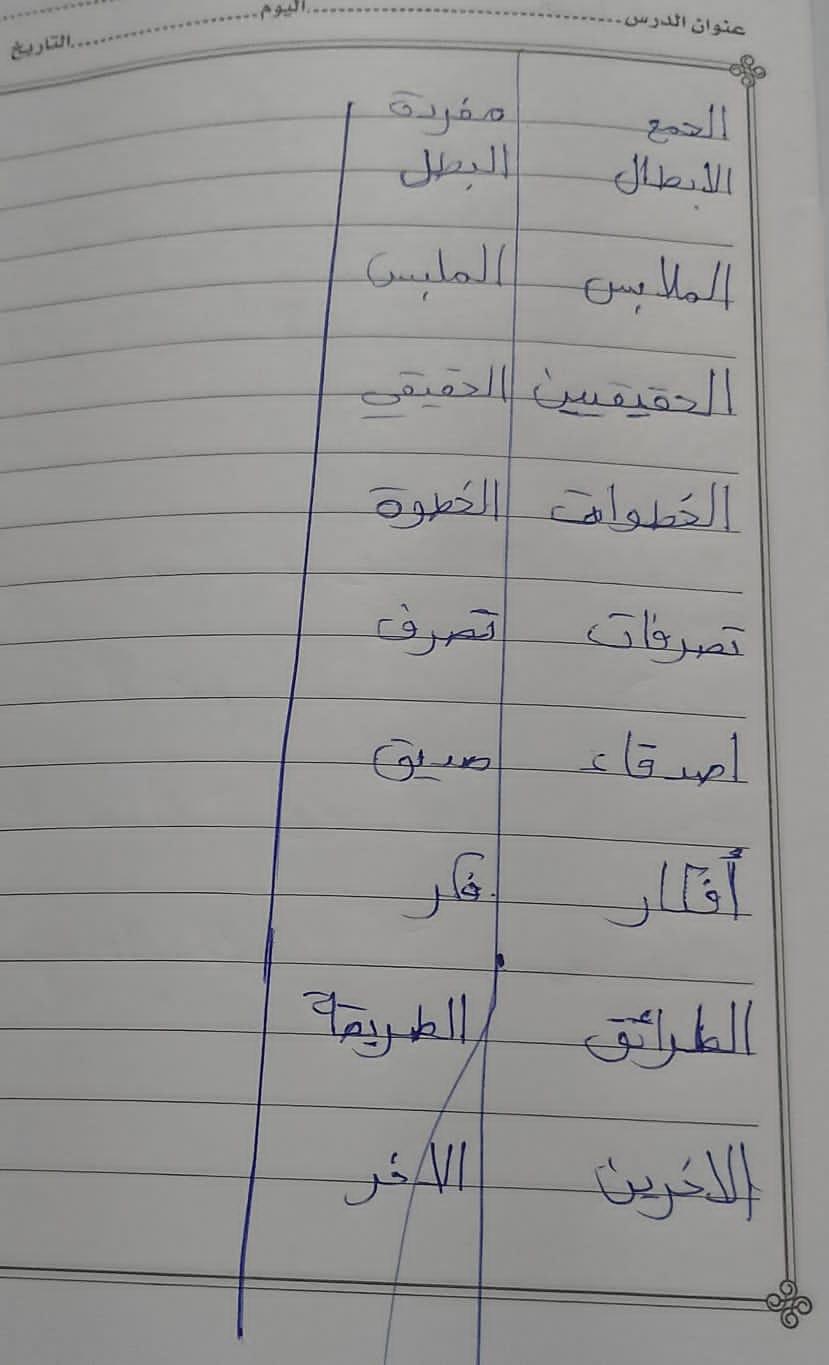 عنوان الدرس ............ اليوم ............ التاريخ
الجمع مفردة
الابطال البطل
الملابس الملبس
الحقيقيين الحقيقي
الخطوات الخطوة
تصرفات تصرف
اصدقاء صديق
أفكار فكر
الطرائق الطريقة
الاخرين الاخر